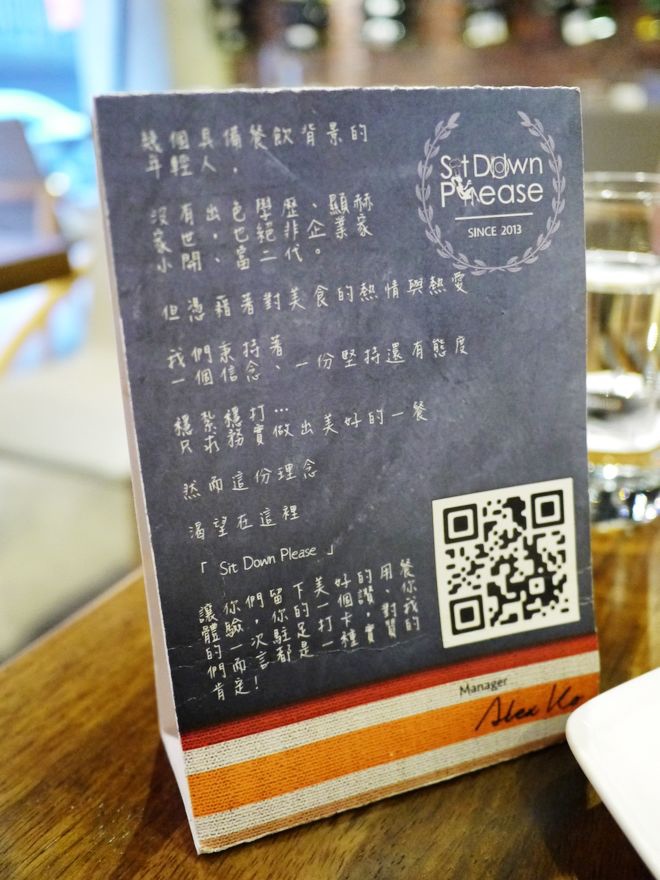 Sit Down
Please
SINCE 2013
幾個具備餐飲背景的
年輕人，
沒有出色學歷、顯赫
家世，也絕非企業家
小開、富二代。
但憑藉著對美食的熱情與熱愛
我們秉持著
一個信念、一份堅持還有態度
穩紮穩打…
只求務實做出美好的一餐
然而這份理念
渴望在這裡
「 Sit Down Please 」
讓你們留下美好的用餐
體驗，你的一個讚、你
的一次駐足打卡，對我
們而言都是一種實質的
肯定！
Manager
Alex Ko